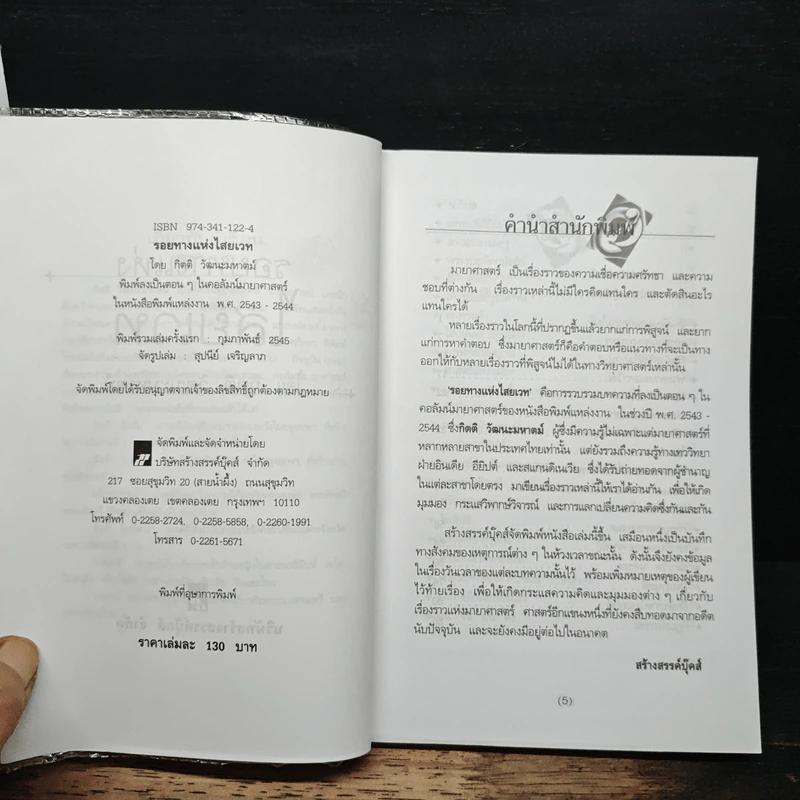 ISBN 974-341-122-4
รอยทางแห่งไสยเวท
โดย กิตติ วัฒนะมหาตม์
พิมพ์ลงเป็นตอน ๆ ในคอลัมน์มายาศาสตร์
ในหนังสือพิมพ์แหล่งงาน พ.ศ. 2543 - 2544
พิมพ์รวมเล่มครั้งแรก : กุมภาพันธ์ 2545
จัดรูปเล่ม : สุปนีย์ เจริญลาภ
จัดพิมพ์โดยได้รับอนุญาตจากเจ้าของลิขสิทธิ์ถูกต้องตามกฎหมาย
จัดพิมพ์และจัดจำหน่ายโดย
บริษัทสร้างสรรค์บุ๊คส์ จำกัด
217 ซอยสุขุมวิท 20 (สายน้ำผึ้ง) ถนนสุขุมวิท
แขวงคลองเตย เขตคลองเตย กรุงเทพฯ 10110
โทรศัพท์ 0-2258-2724, 0-2258-5858, 0-2260-1991
โทรสาร 0-2261-5671
พิมพ์ที่อุษาการพิมพ์
ราคาเล่มละ 130 บาท
คำนำสำนักพิมพ์
มายาศาสตร์ เป็นเรื่องราวของความเชื่อความศรัทธา และความ
ชอบที่ต่างกัน เรื่องราวเหล่านี้ไม่มีใครคิดแทนใคร และตัดสินอะไร
แทนใครได้
หลายเรื่องราวในโลกนี้ที่ปรากฏขึ้นแล้วยากแก่การพิสูจน์ และยาก
แก่การหาคำตอบ ซึ่งมายาศาสตร์ก็คือคำตอบหรือแนวทางที่จะเป็นทาง
ออกให้กับหลายเรื่องราวที่พิสูจน์ไม่ได้ในทางวิทยาศาสตร์เหล่านั้น
'รอยทางแห่งไสยเวท' คือการรวบรวมบทความที่ลงเป็นตอน ๆ ใน
คอลัมน์มายาศาสตร์ของหนังสือพิมพ์แหล่งงาน ในช่วงปี พ.ศ. 2543 -
2544 ซึ่งกิตติ วัฒนะมหาตม์ ผู้ซึ่งมีความรู้ไม่เฉพาะแต่มายาศาสตร์ที่
หลากหลายสาขาในประเทศไทยเท่านั้น แต่ยังรวมถึงความรู้ทางเทววิทยา
ฝ่ายอินเดีย อียิปต์ และสแกนดิเนเวีย ซึ่งได้รับถ่ายทอดจากผู้ชำนาญ
ในแต่ละสาขาโดยตรง มาเขียนเรื่องราวเหล่านี้ให้เราได้อ่านกัน เพื่อให้เกิด
มุมมอง กระแสวิพากษ์วิจารณ์ และการแลกเปลี่ยนความคิดซึ่งกันและกัน
สร้างสรรค์บุ๊คส์จัดพิมพ์หนังสือเล่มนี้ขึ้น เสมือนหนึ่งเป็นบันทึก
ทางสังคมของเหตุการณ์ต่าง ๆ ในห้วงเวลาขณะนั้น ดังนั้นจึงยังคงข้อมูล
ในเรื่องวันเวลาของแต่ละบทความนั้นไว้ พร้อมเพิ่มหมายเหตุของผู้เขียน
ไว้ท้ายเรื่อง เพื่อให้เกิดกระแสความคิดและมุมมองต่าง ๆ เกี่ยวกับ
เรื่องราวแห่งมายาศาสตร์ ศาสตร์อีกแขนงหนึ่งที่ยังคงสืบทอดมาจากอดีต
นับปัจจุบัน และจะยังคงมีอยู่ต่อไปในอนาคต
สร้างสรรค์บุ๊คส์
(5)